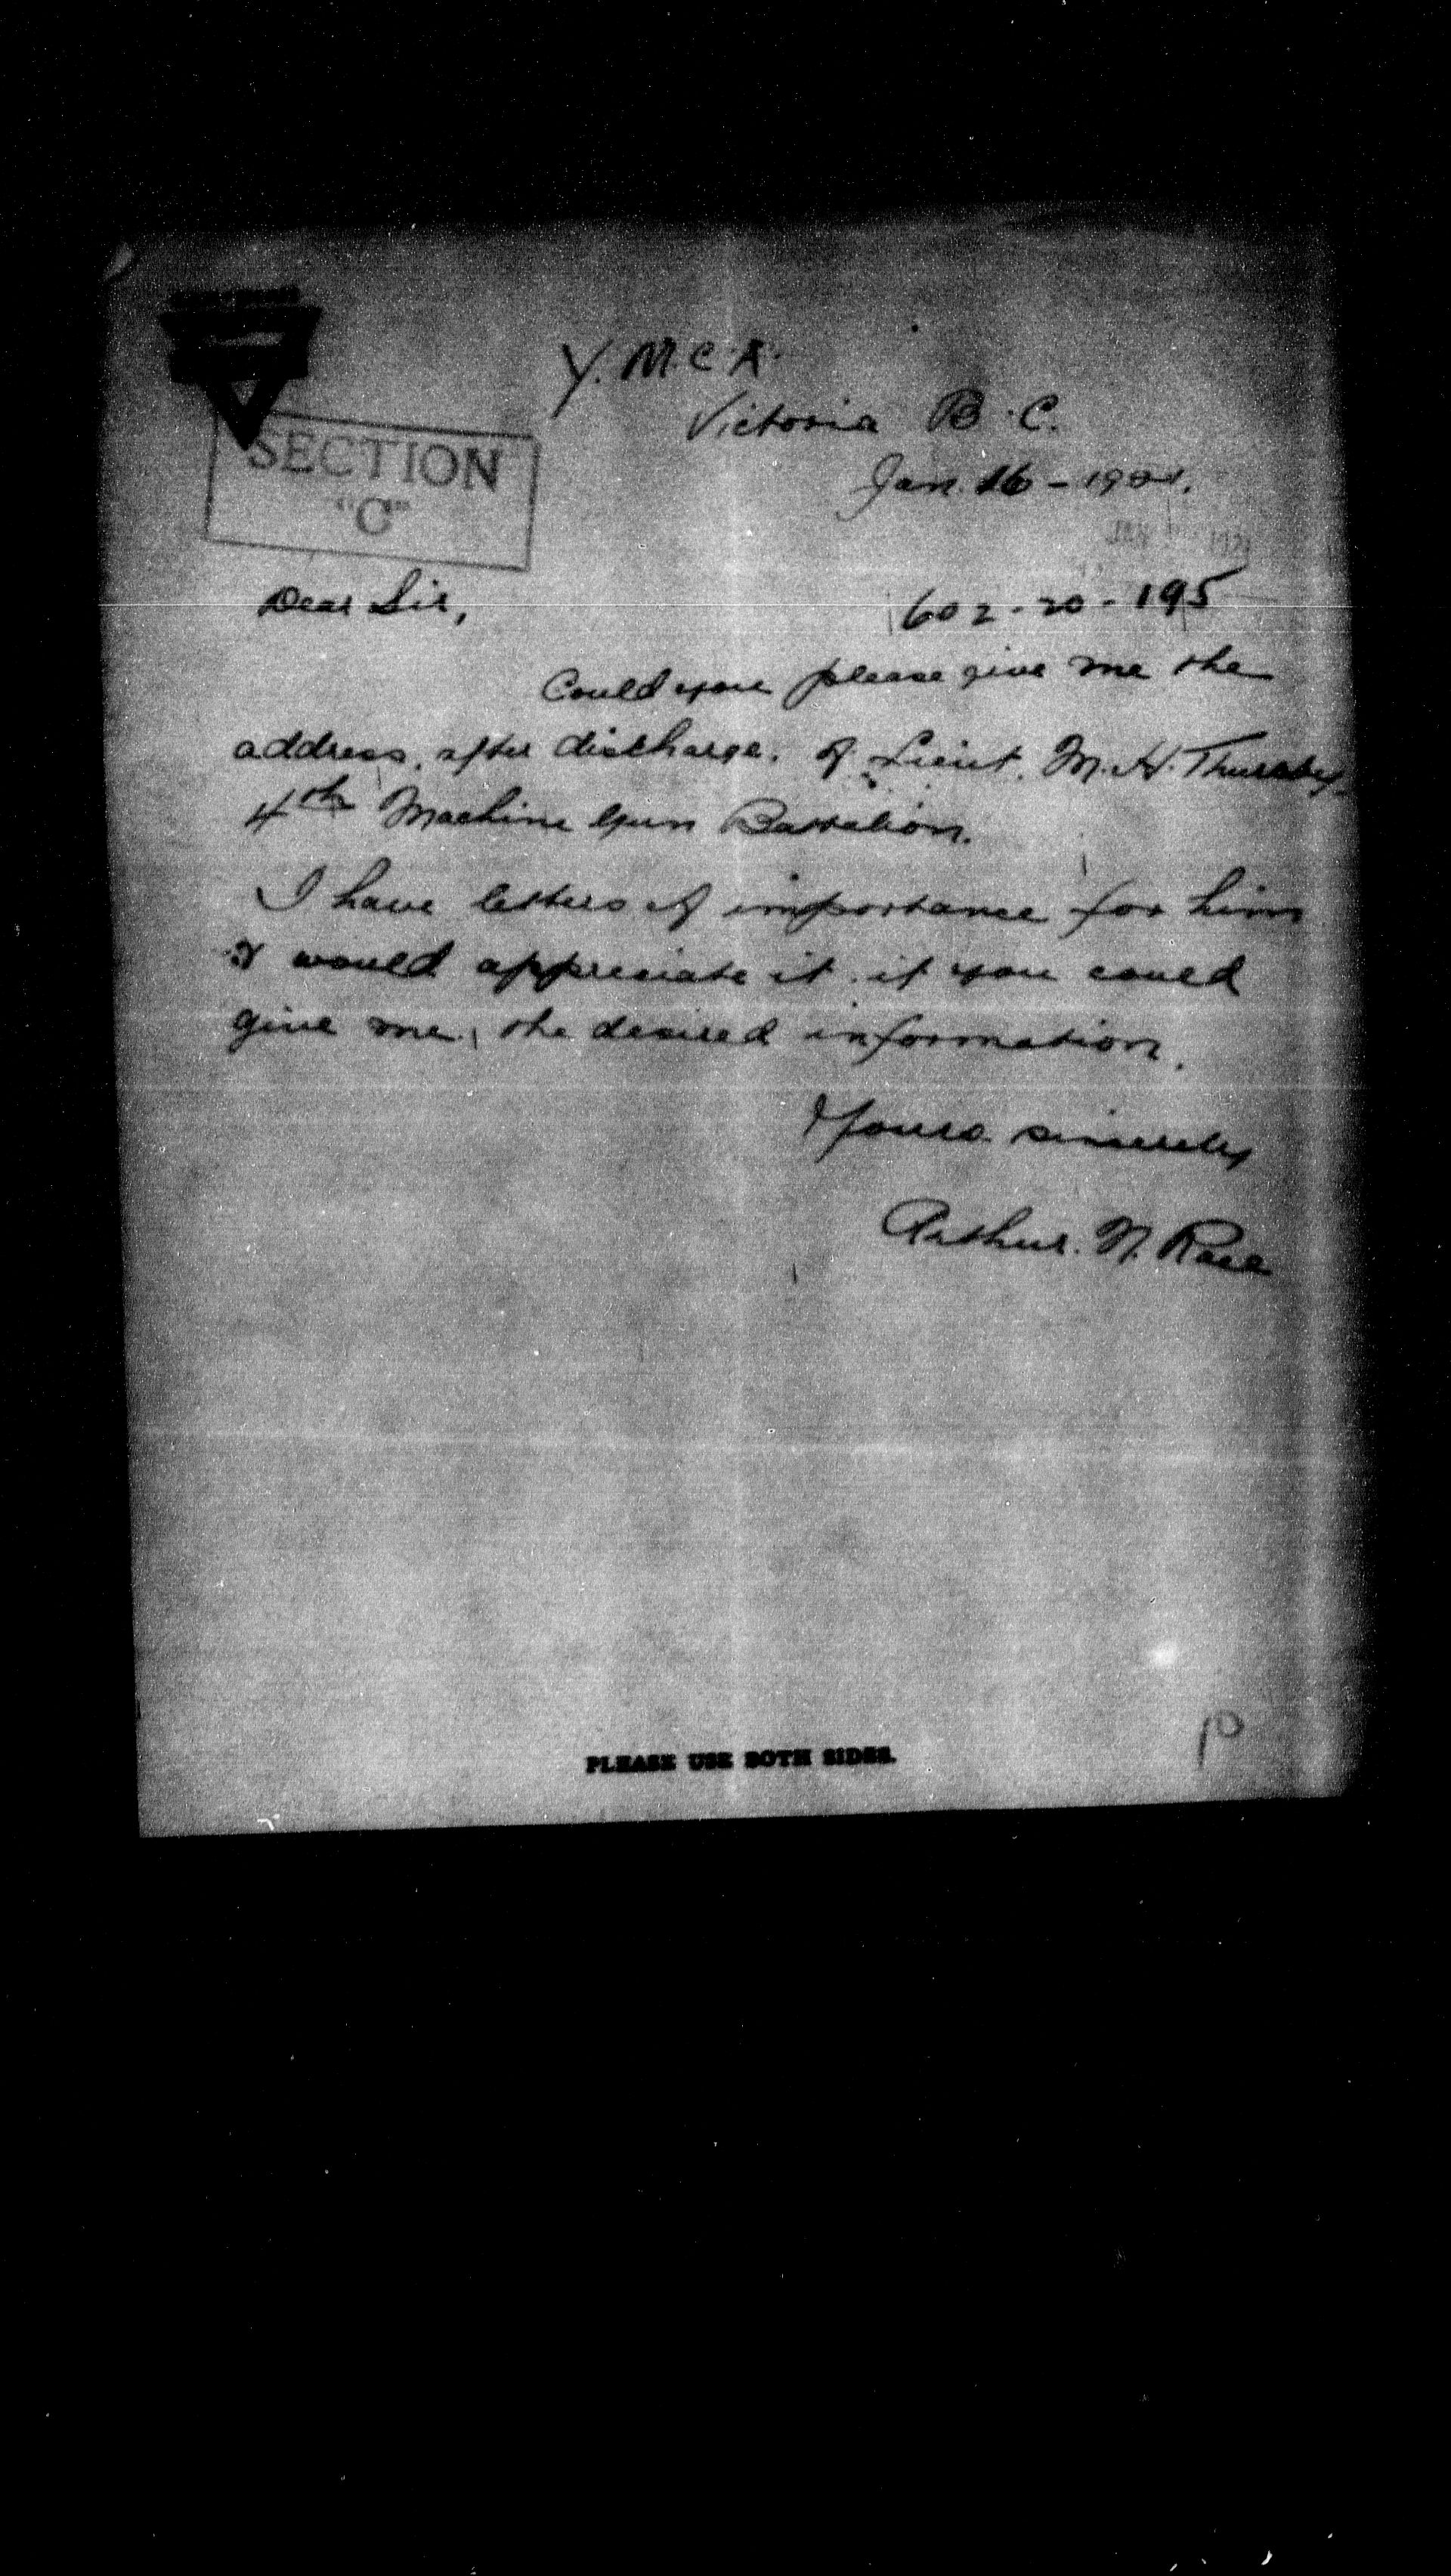 Y. M. C. A.
Victoria B. C.
Jan. 16 - 1921.
SECTION
"C"
JAN 1921
Dear Sir,
602-20-195
Could you please give me the
address, after discharge, of Lieut. M. H. Thursby
4th Machine Gun Battalion.
I have letters of importance for him
& would appreciate it if you could
give me, the desired information.
Yours sincerely
Arthur. N. Race
PLEASE USE BOTH SIDES.
P